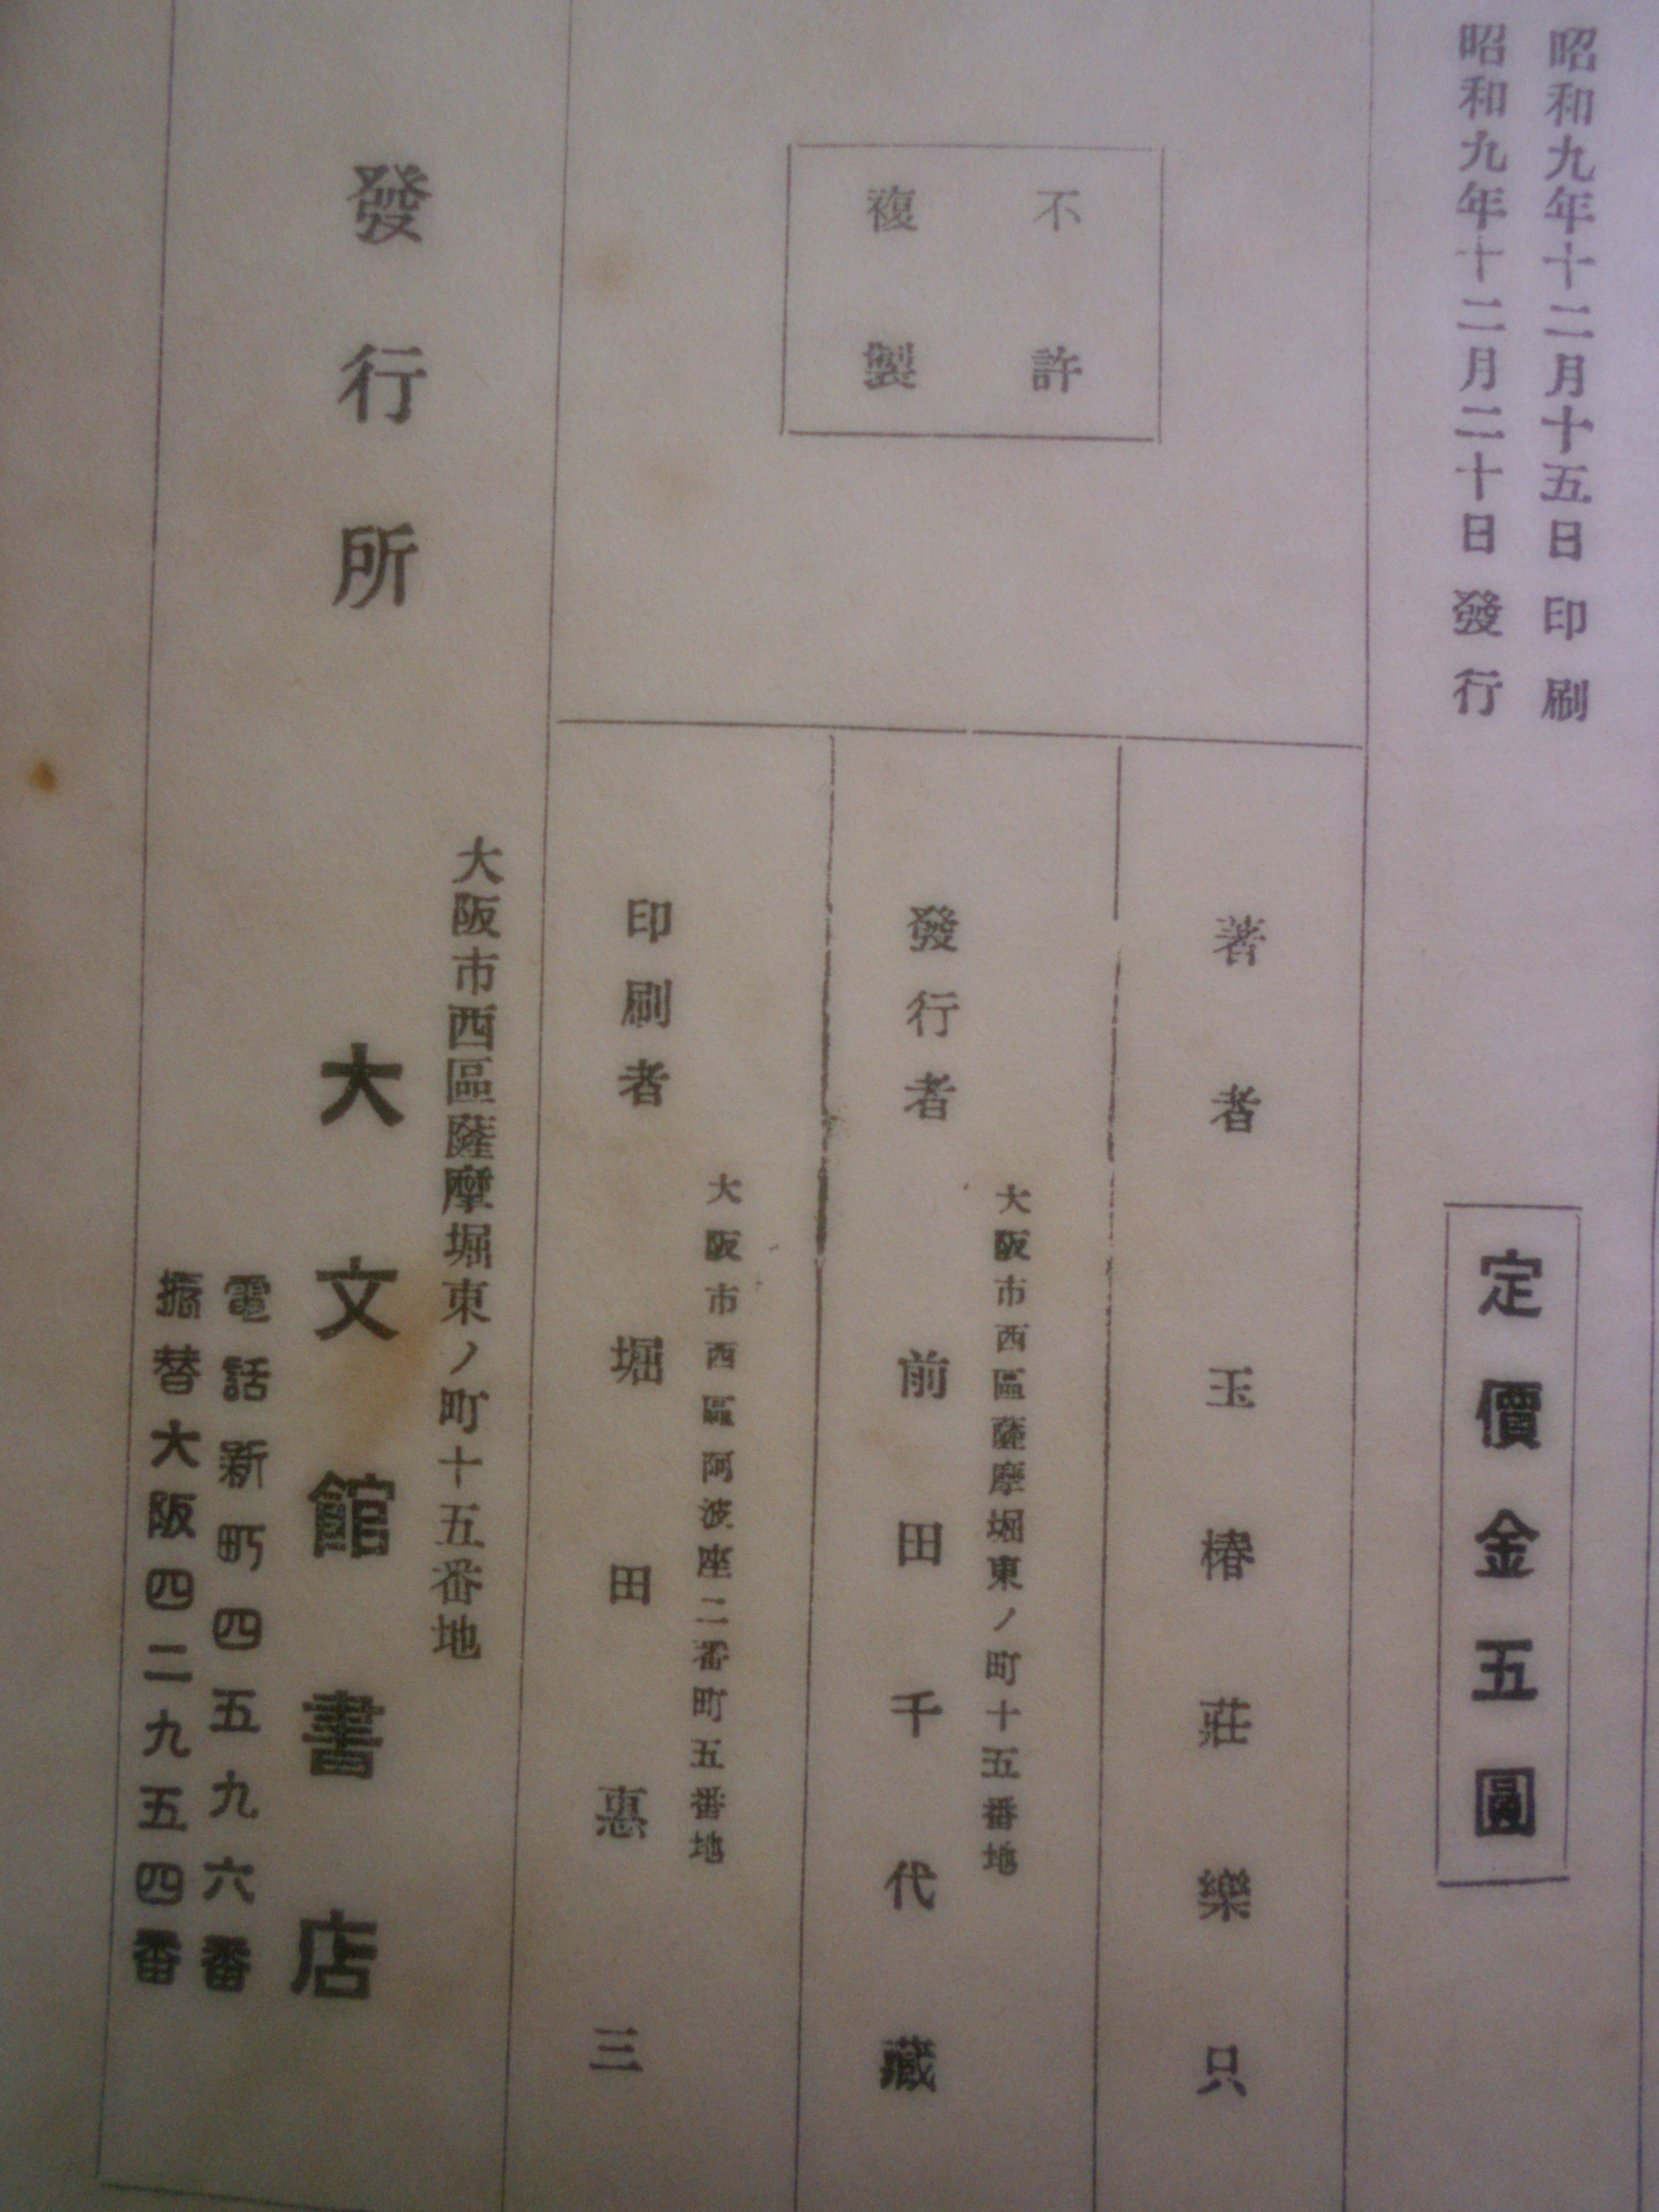 昭和九年十二月十五日印刷
昭和九年十二月二十日發行
定價金五圓
不許
複製
著者
玉椿莊樂只
大阪市西區薩摩堀東ノ町十五番地
發行者
前田千代藏
大阪市西區阿波座二番町五番地
印刷者
堀田惠三
發行所
大阪市西區薩摩堀東ノ町十五番地
大文館書店
電話新町四五九六番
振替大阪四二九五四番